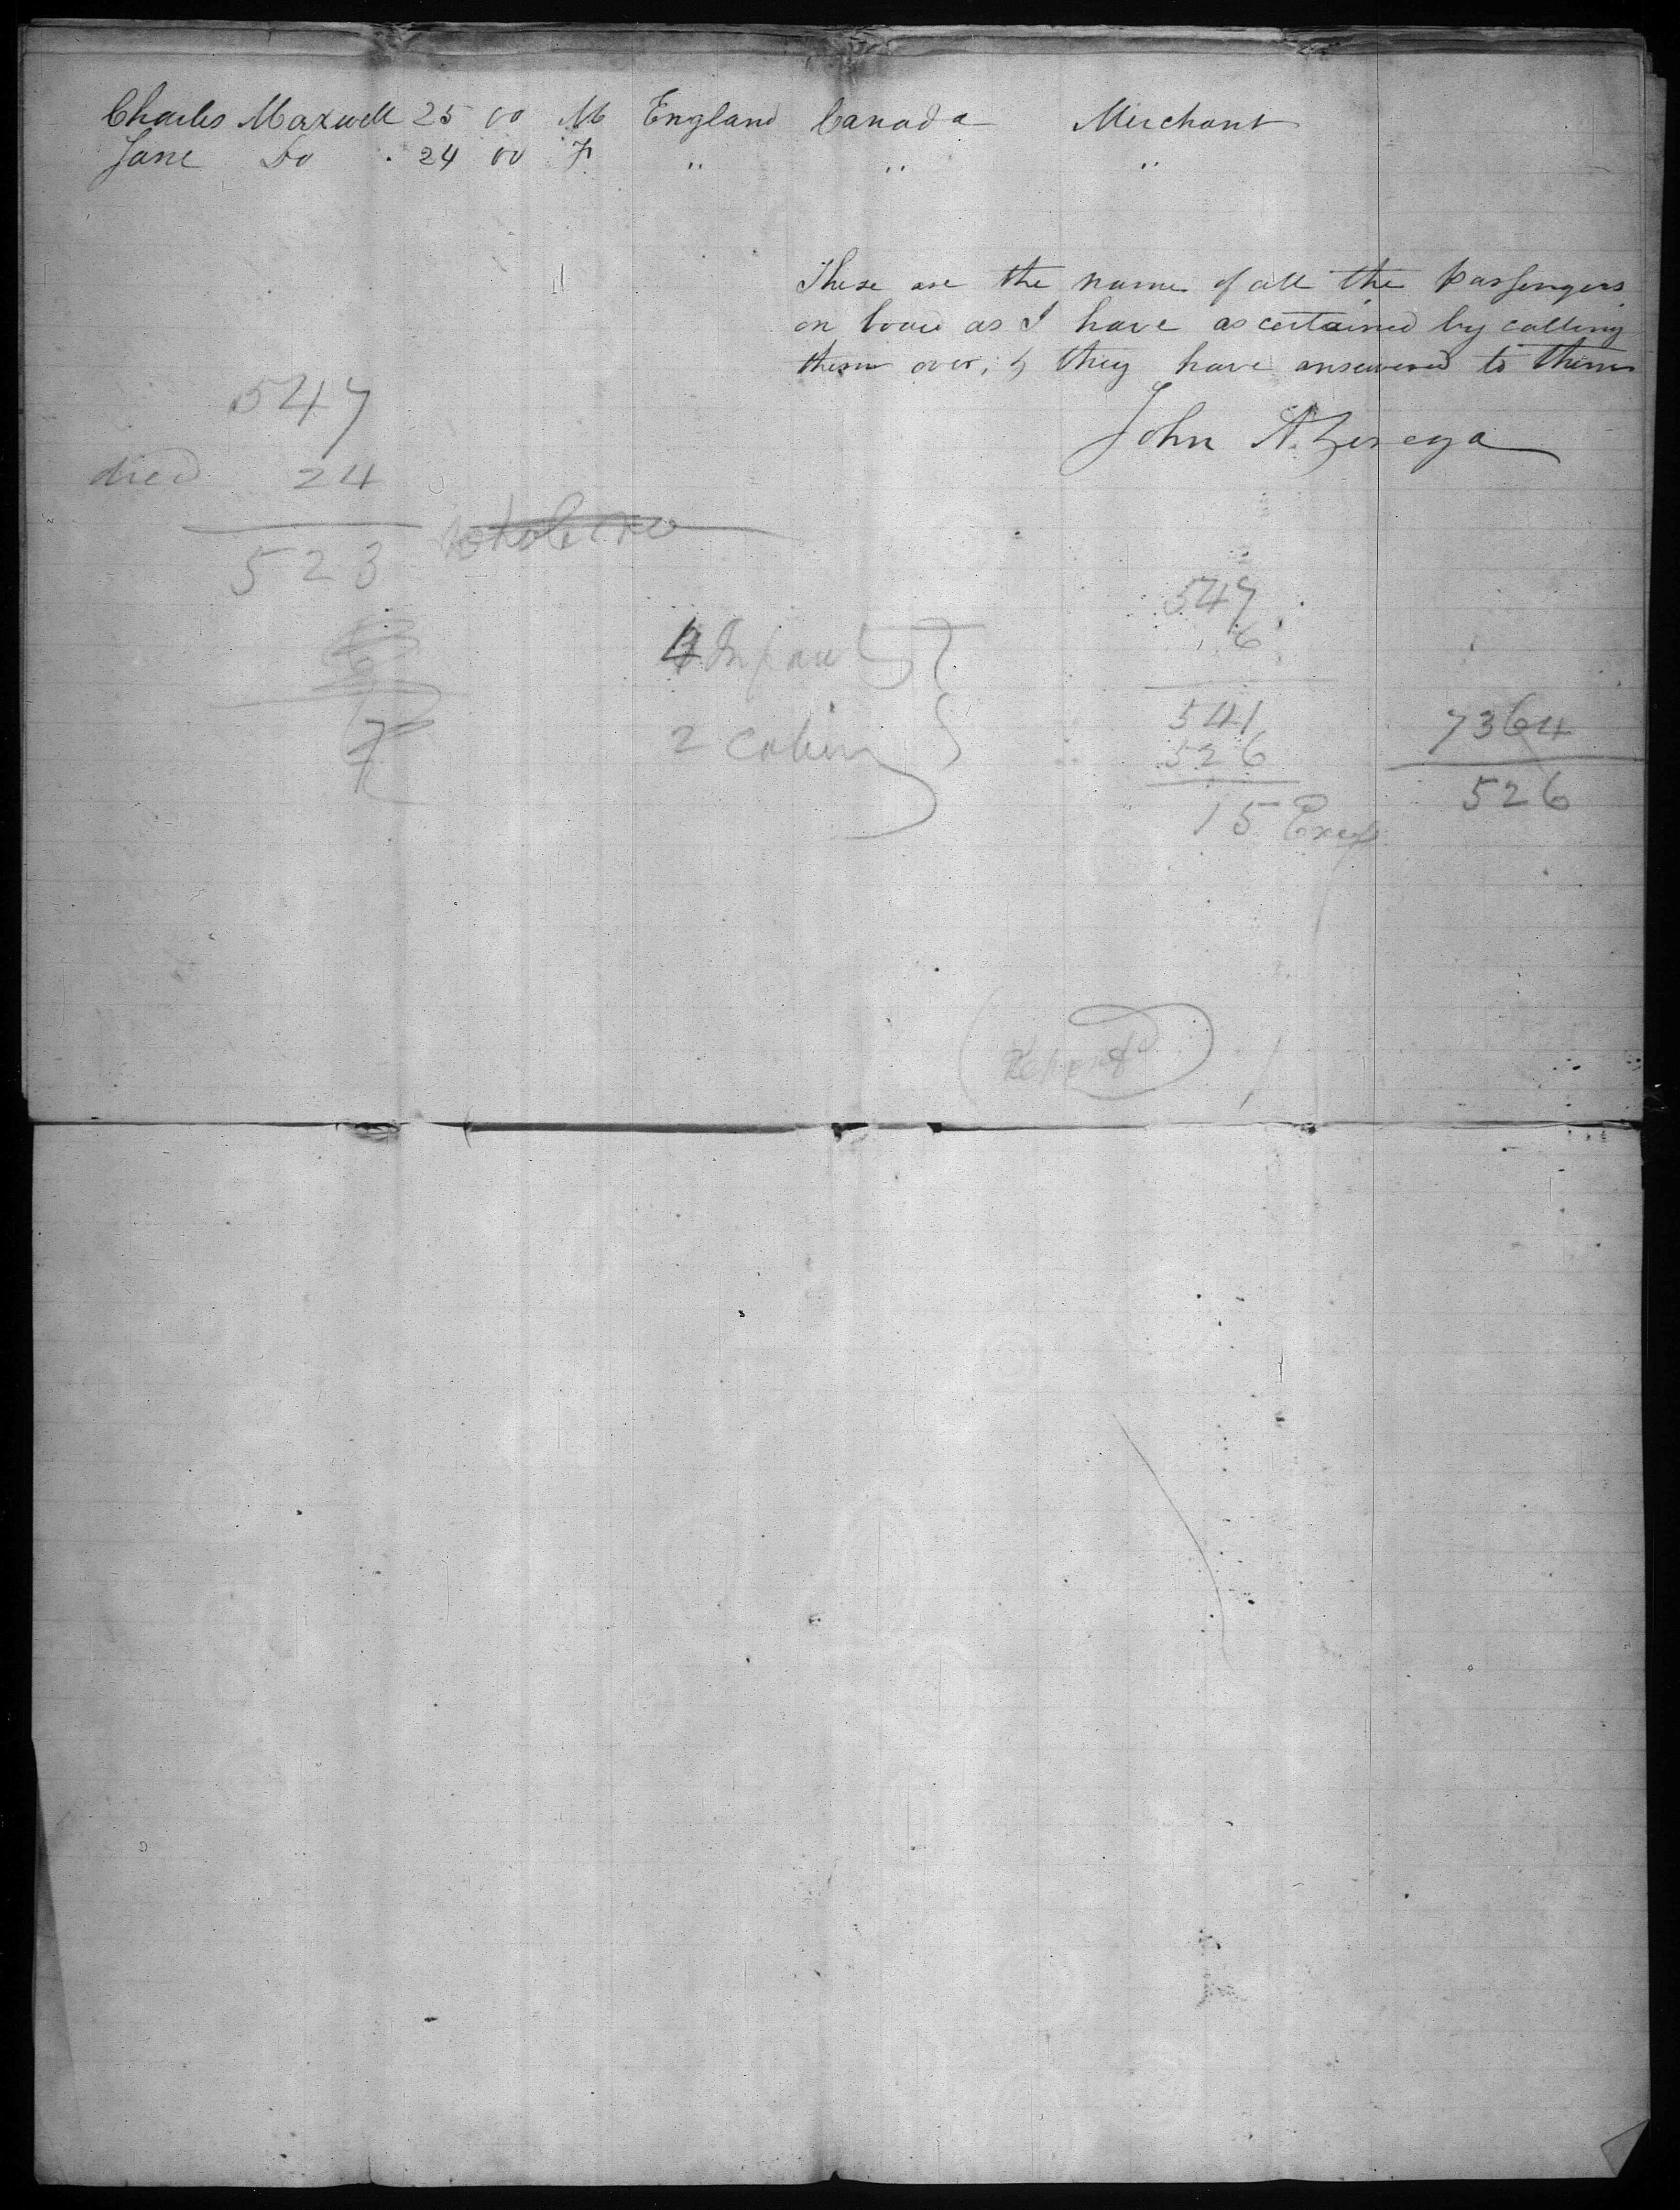 Charles Maxwell 25 00 M England Canada Merchant
Jane Do 24 00 F " " "
These are the name of all the Passengers
on board as I have ascertained by calling
them over, & they have answered to them
John A. Zerega
547
died 24
523
6
7
4 Infau
2 Cabin
547
6
541
526
15 Excess
7364
526